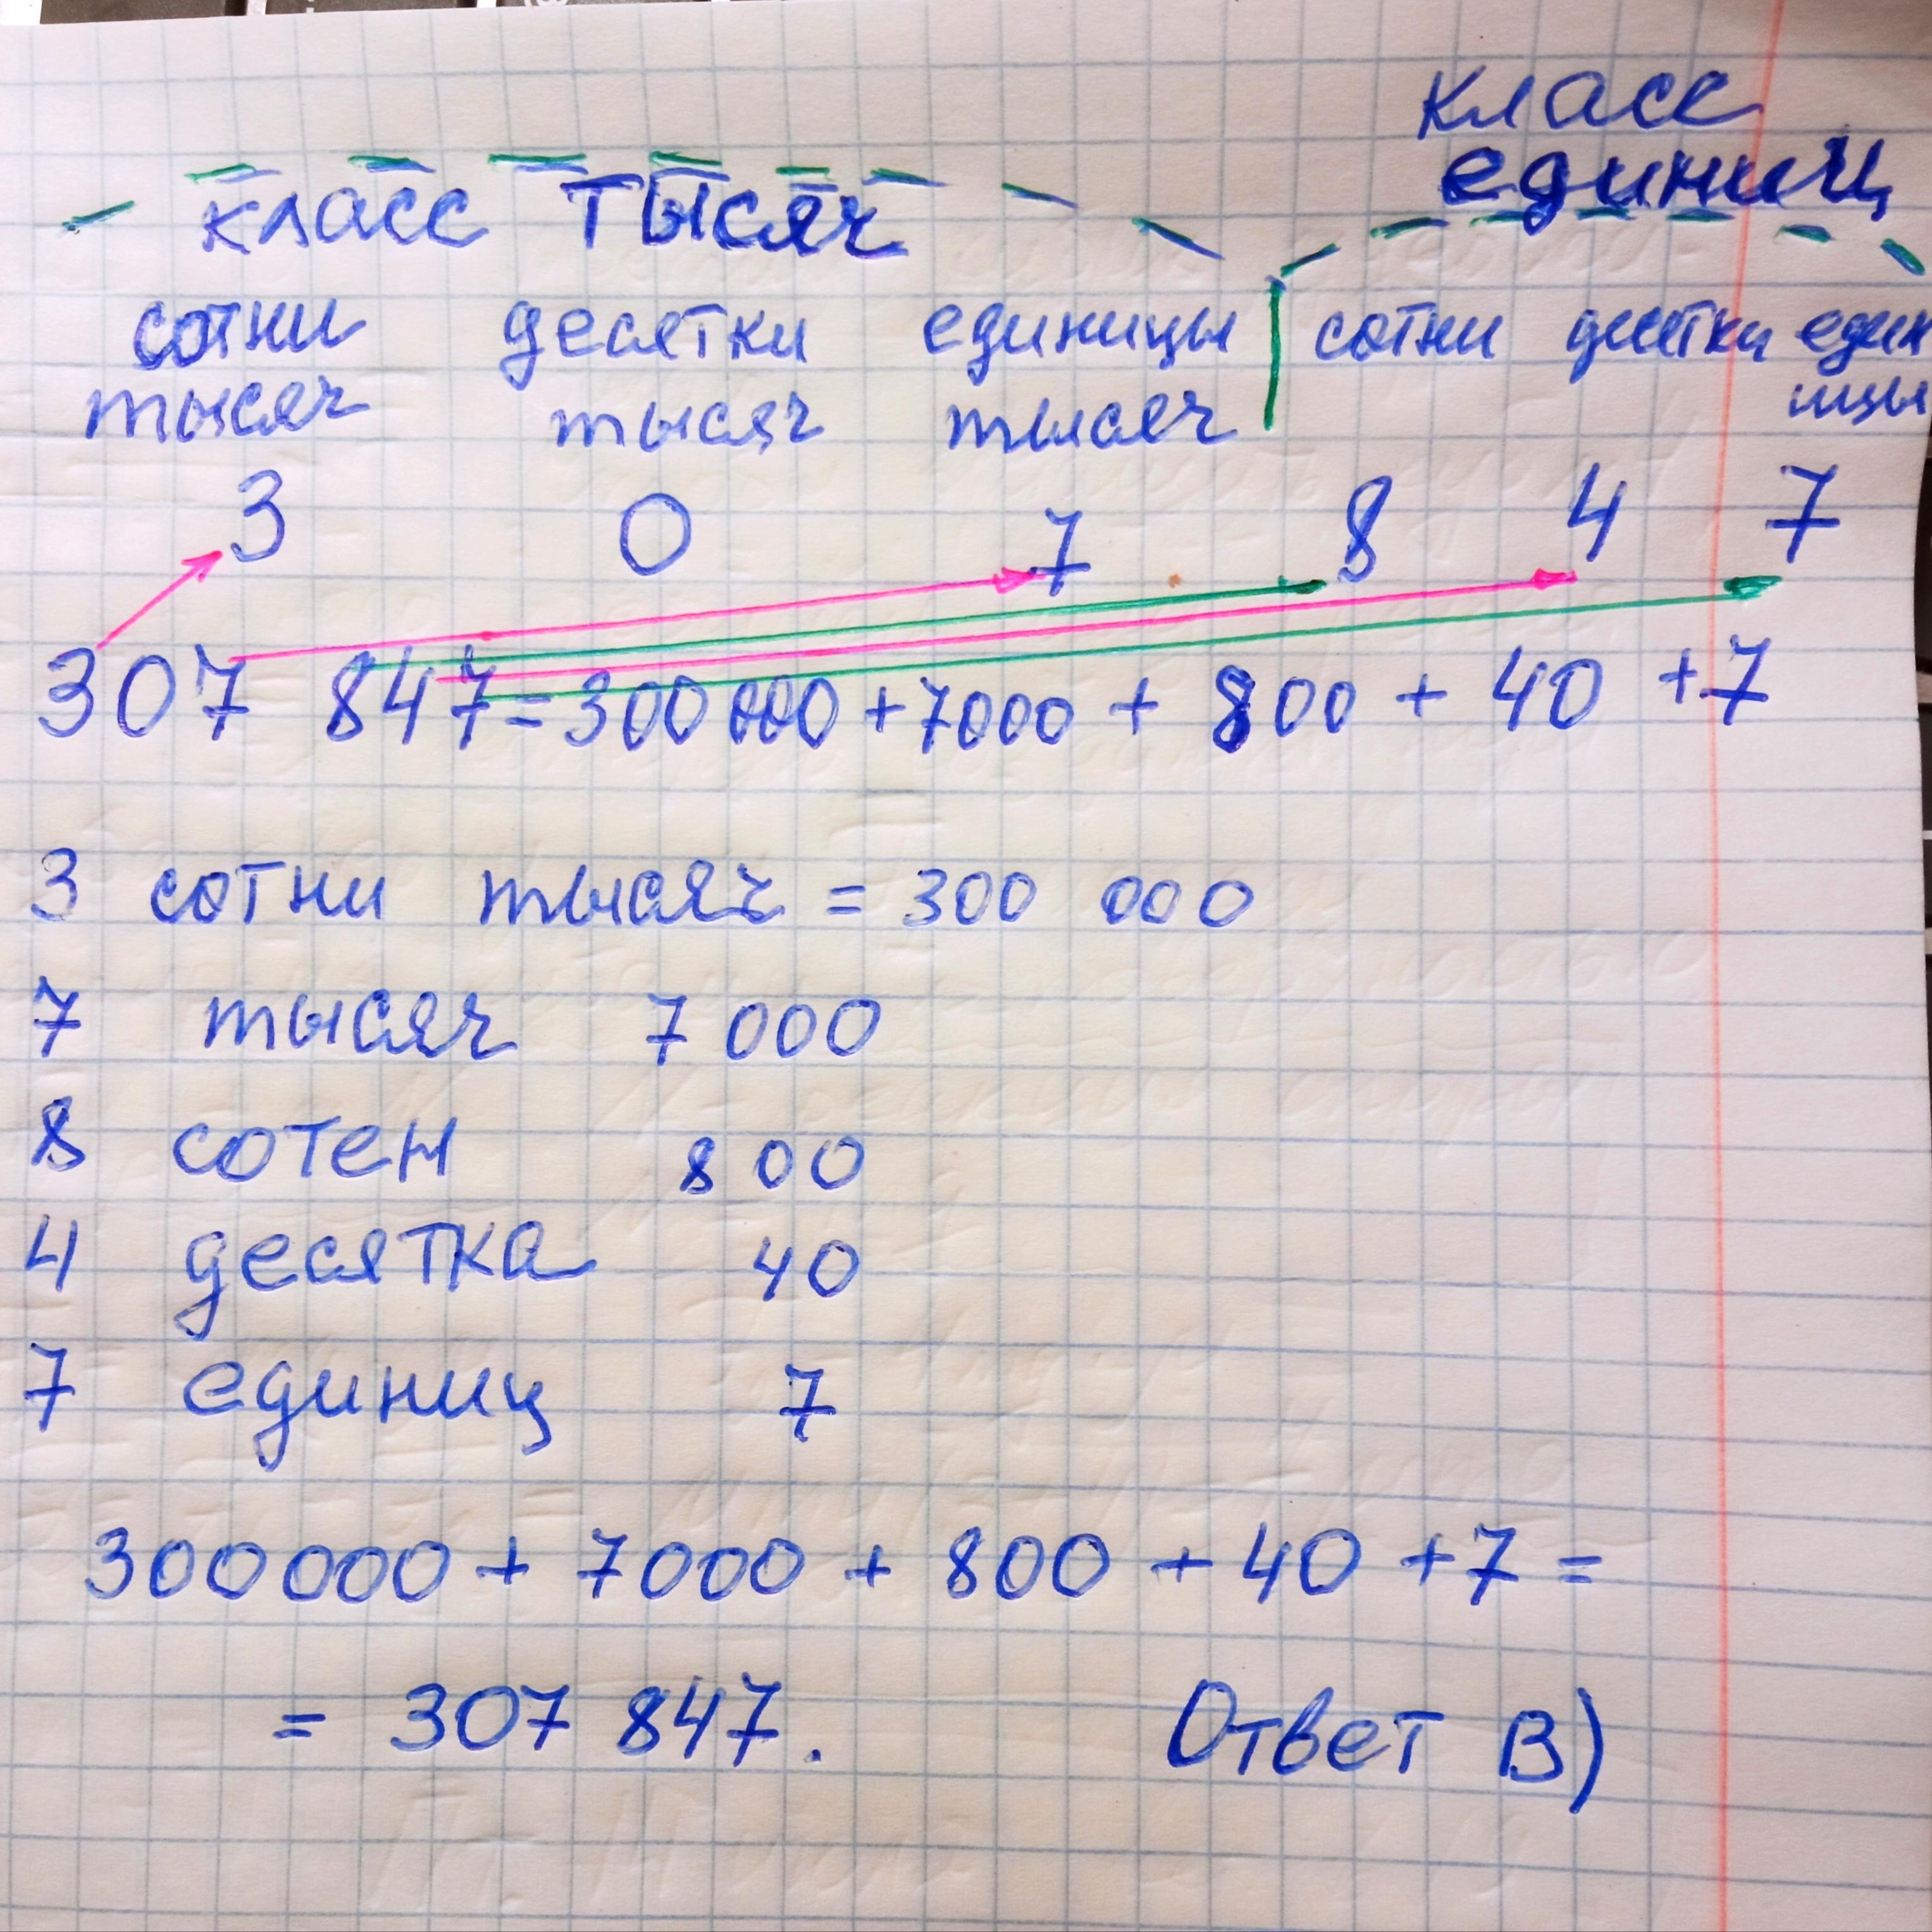 класс
единиц
класс тысяч
сотни десятки единицы сотни десятки един
тысяч тысяч тысяч ицы
3 0 7 8 4 7
307 847 = 300 000 + 7000 + 800 + 40 + 7
3 сотни тысяч = 300 000
7 тысяч 7 000
8 сотен 800
4 десятка 40
7 единиц 7
300 000 + 7000 + 800 + 40 + 7 =
= 307 847. Ответ В)